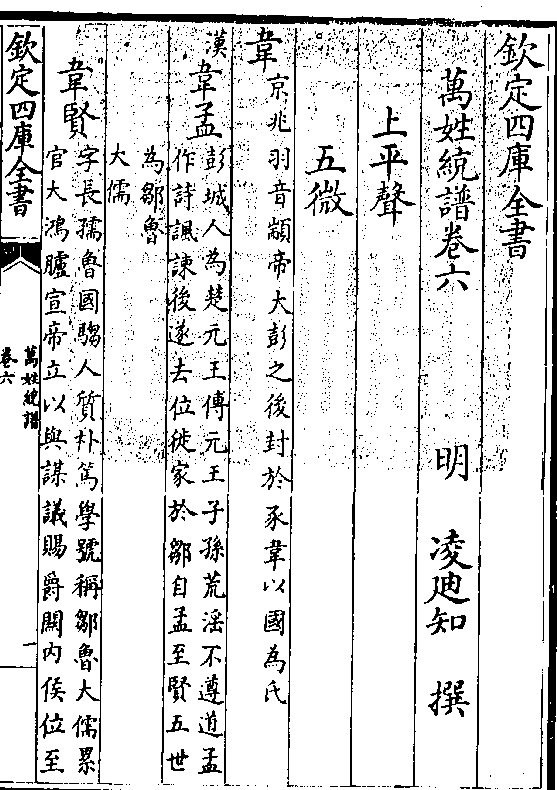 欽定四庫全書
萬姓統譜卷六
明 凌廸知 撰
上平聲
五微
韋京兆羽音顓帝大彭之後封於豕韋以國為氏
漢
韋孟彭城人為楚元王傅元王子孫荒滛不遵道孟
作詩諷諫後遂去位徙家於鄒自孟至賢五世
為鄒魯
大儒
韋賢字長孺魯國騶人質朴篤學號稱鄒魯大儒累
官大鴻臚宣帝立以與謀議賜爵關内侯位至
欽定四庫全書
萬姓統譜
卷六
一